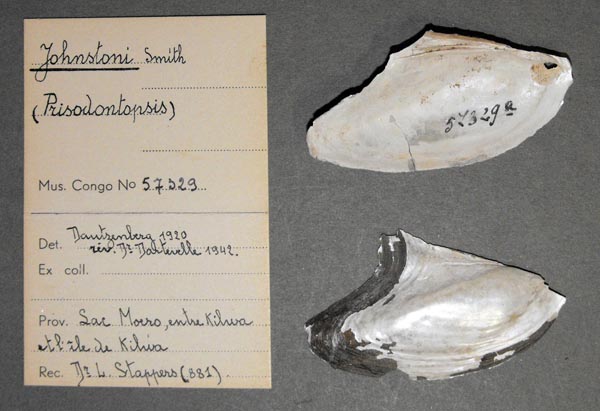 Johnstoni Smith
(Prisodontopsis)
Mus. Congo No 57.329
Det. Dautzenberg 1920
rév. Dr Dartevelle 1942.
Ex coll.
Prov. Lac Moero, entre Kilwa
et l'île de Kilwa
Rec. Dr L. Stappers (881).
57329a